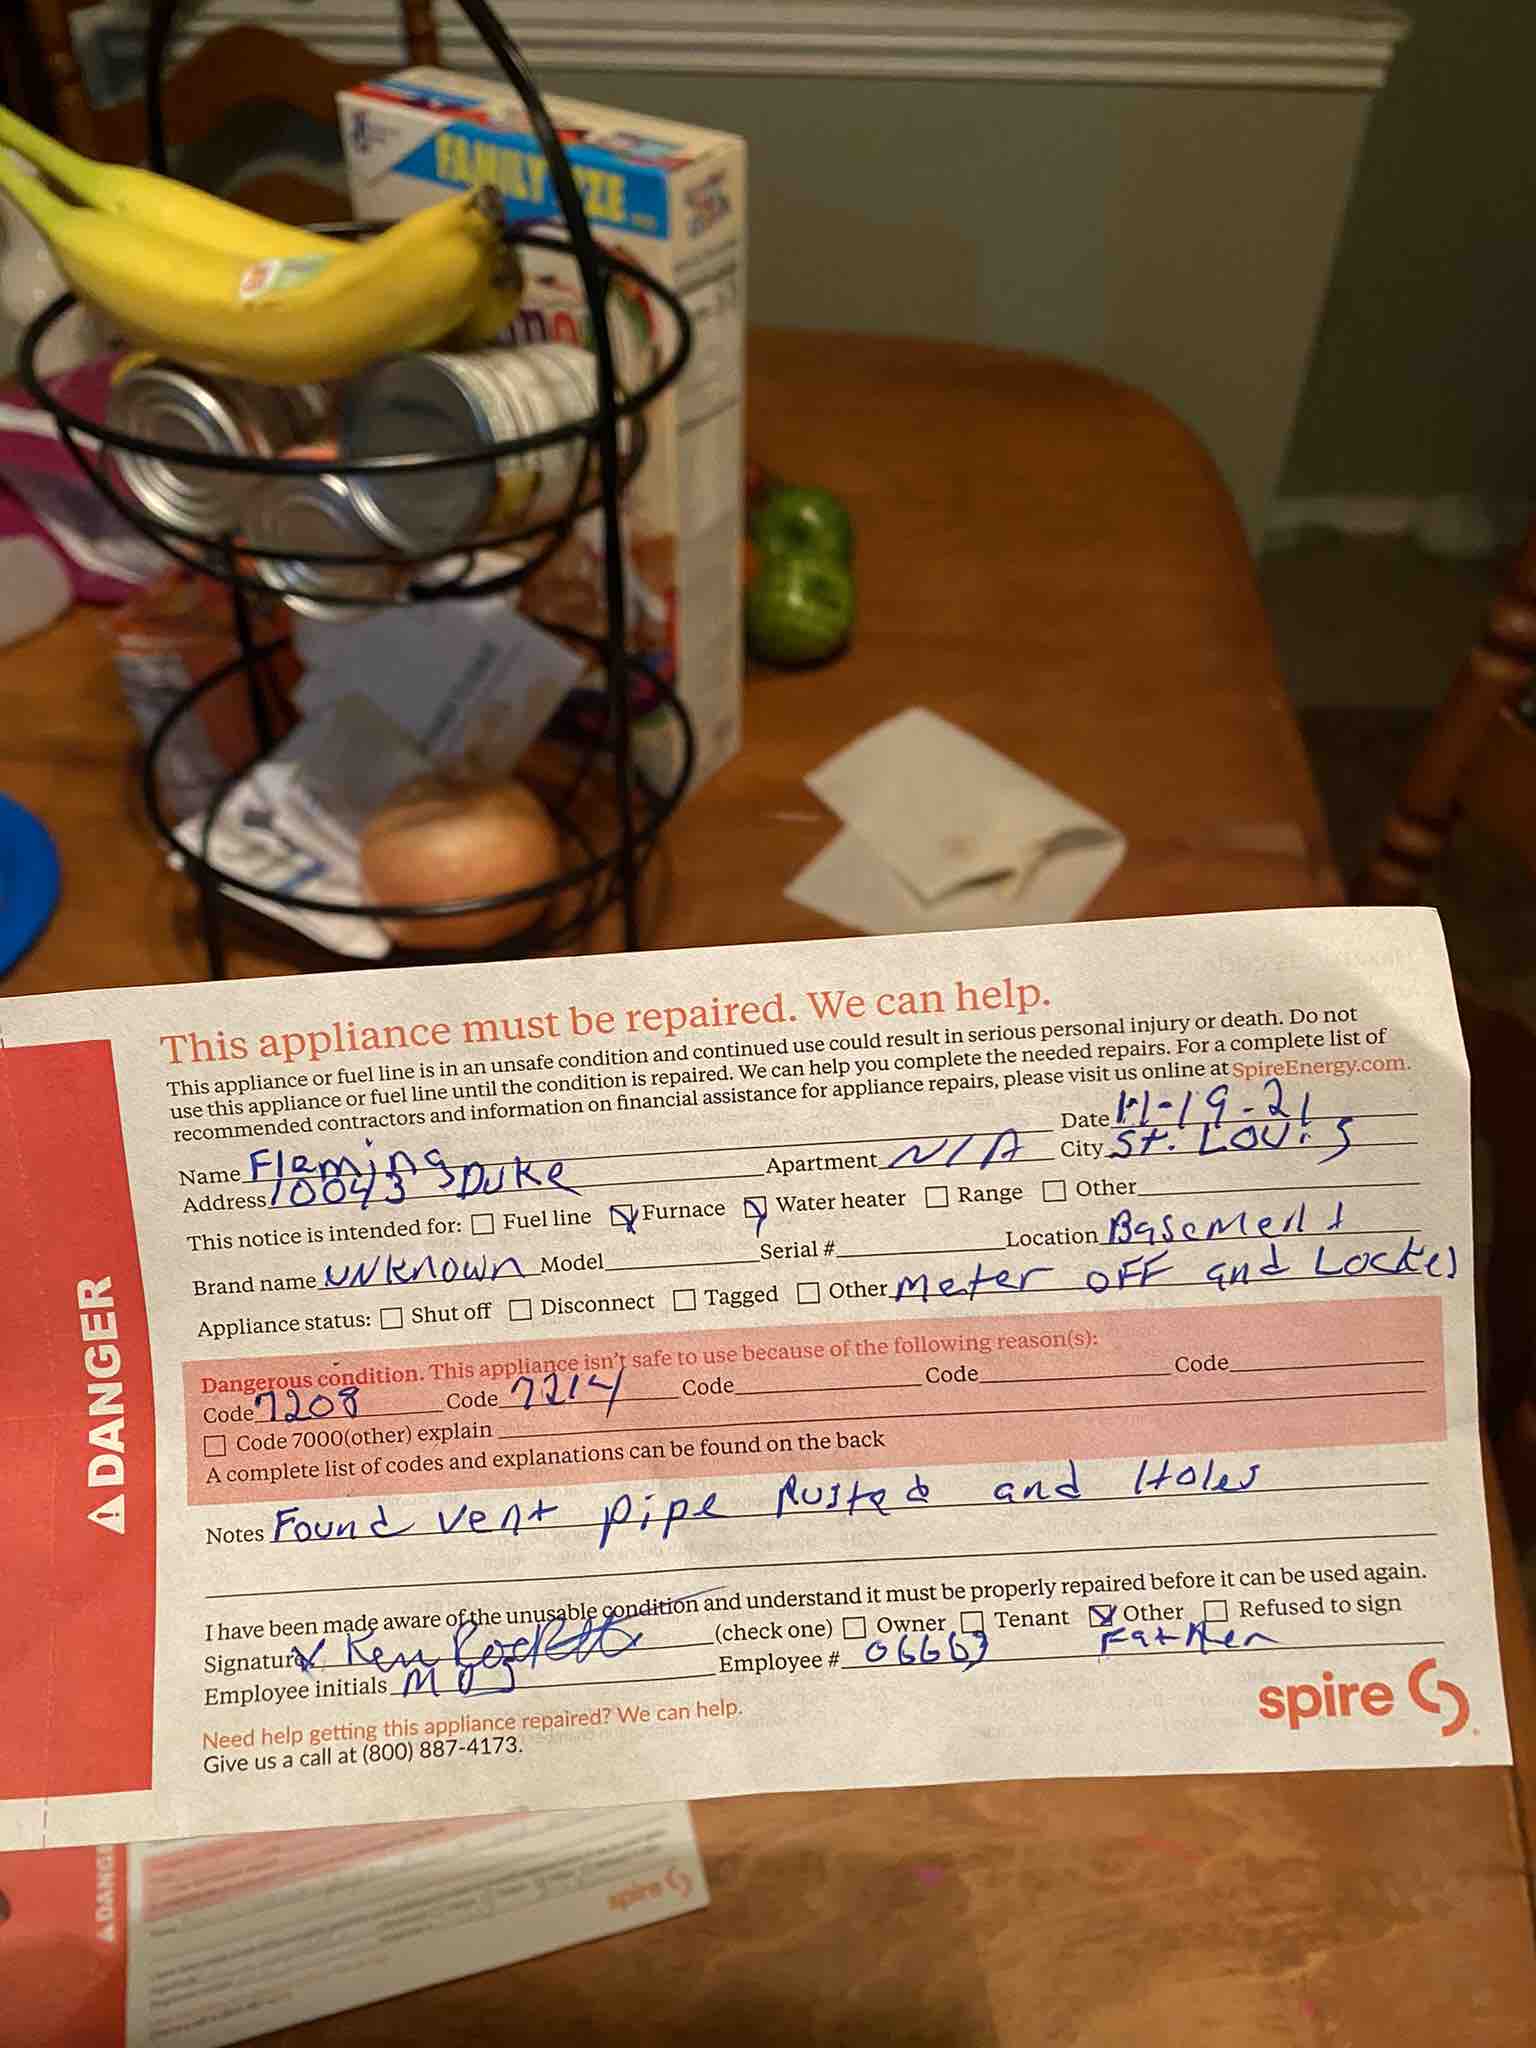 FAMILY SIZE
This appliance must be repaired. We can help.
This appliance or fuel line is in an unsafe condition and continued use could result in serious personal injury or death. Do not
use this appliance or fuel line until the condition is repaired. We can help you complete the needed repairs. For a complete list of
recommended contractors and information on financial assistance for appliance repairs, please visit us online at SpireEnergy.com.
Date 11-19-21
Name Fleming Apartment N/A City St. Louis
Address 10043 Duke
This notice is intended for: Fuel line Furnace Water heater Range Other
Brand name unknown Model Serial # Location Basement
Appliance status: Shut off Disconnect Tagged Other Meter off and Locked
DANGER
Dangerous condition. This appliance isn't safe to use because of the following reason(s):
Code 7208 Code 7214 Code Code Code
Code 7000(other) explain
A complete list of codes and explanations can be found on the back
Notes Found vent pipe Rusted and Holes
I have been made aware of the unusable condition and understand it must be properly repaired before it can be used again.
Signature X Ken (check one) Owner Tenant Other Refused to sign
Father
Employee initials Employee # 06663
Need help getting this appliance repaired? We can help.
Give us a call at (800) 887-4173.
spire
DANGE
spire